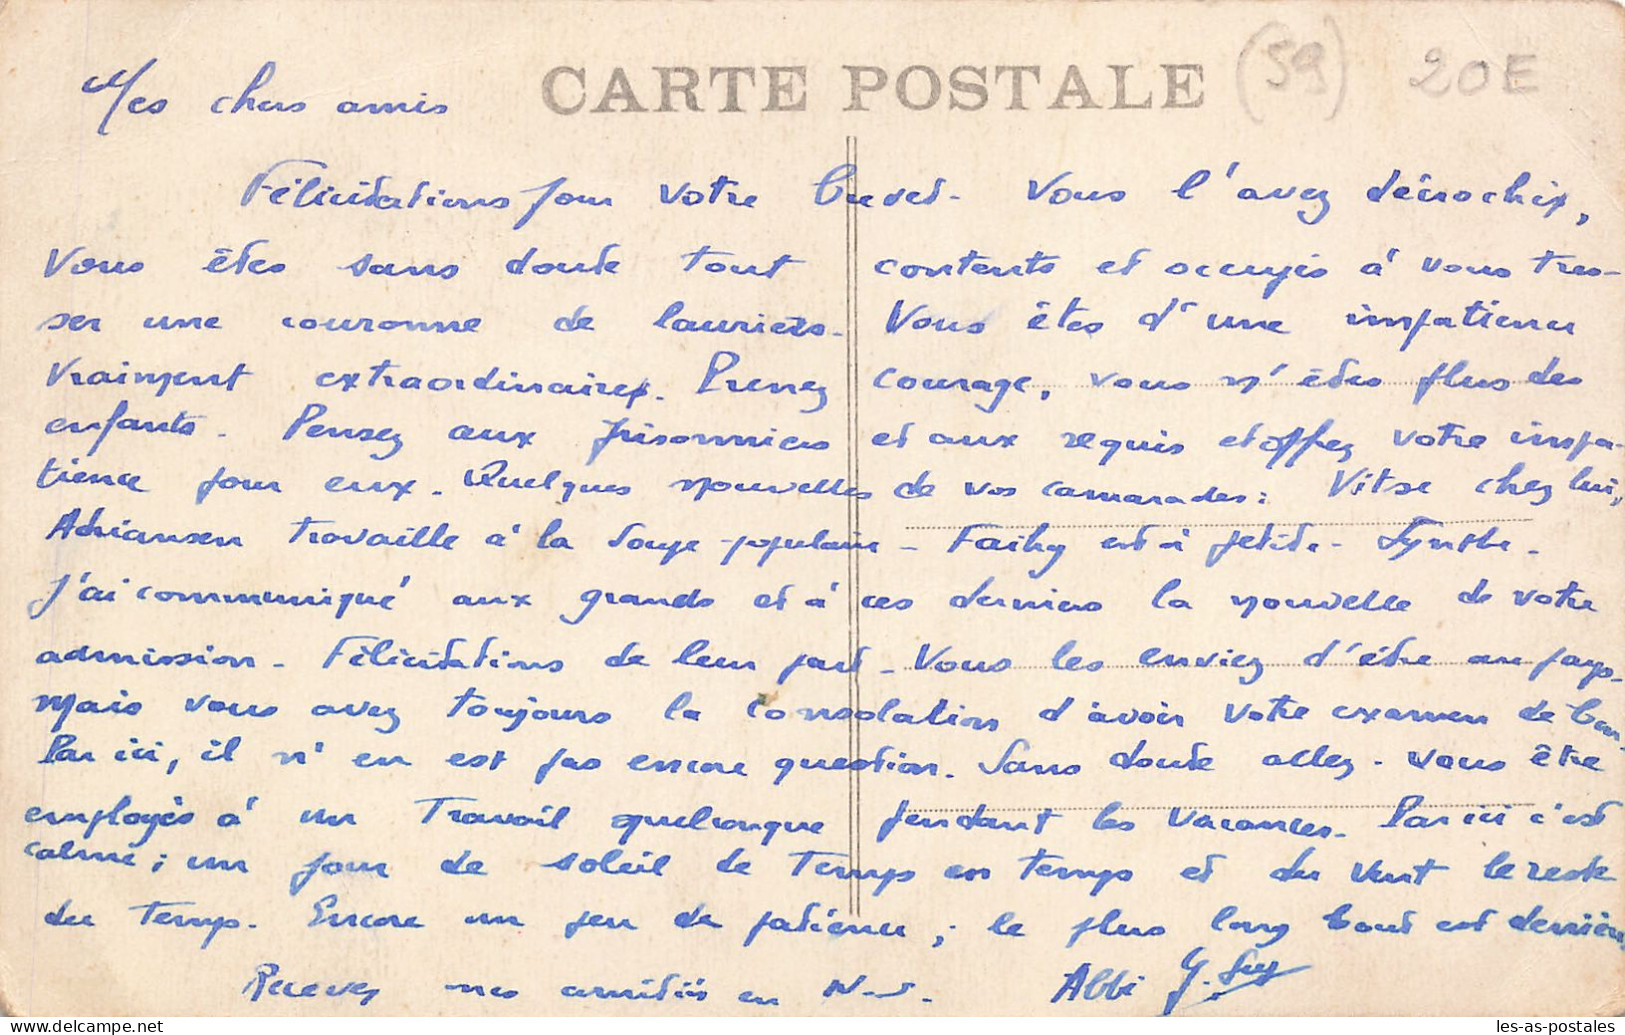 CARTE POSTALE
(59) 20E
Mes chers amis
Félicitations pour votre brevet. Vous l'avez décroché,
vous êtes sans doute tout contents et occupés à vous tres-
ser une couronne de lauriers. Vous êtes d'une impatience
vraiment extraordinaire. Prenez courage, vous n'êtes plus des
enfants. Pensez aux prisonniers et aux requis et offrez votre impa-
tience pour eux. Quelques nouvelles de vos camarades : Vitse chez lui,
Adriansen travaille à la Soupe populaire - est à petite-Synthe.
J'ai communiqué aux grands et à ces derniers la nouvelle de votre
admission. Félicitations de leur part. Vous les enviez d'être au pays.
Mais vous avez toujours la consolation d'avoir votre examen de bon.
Par ici, il n'en est pas encore question. Sans doute allez-vous être
employés à un travail quelconque pendant les vacances. Par ici c'est
calme ; un jour de soleil de temps en temps et du vent le reste
du temps. Encore un peu de patience ; le plus long bout est derrière
Recevez mes amitiés en N.-S. Abbé G.
les-as-postales